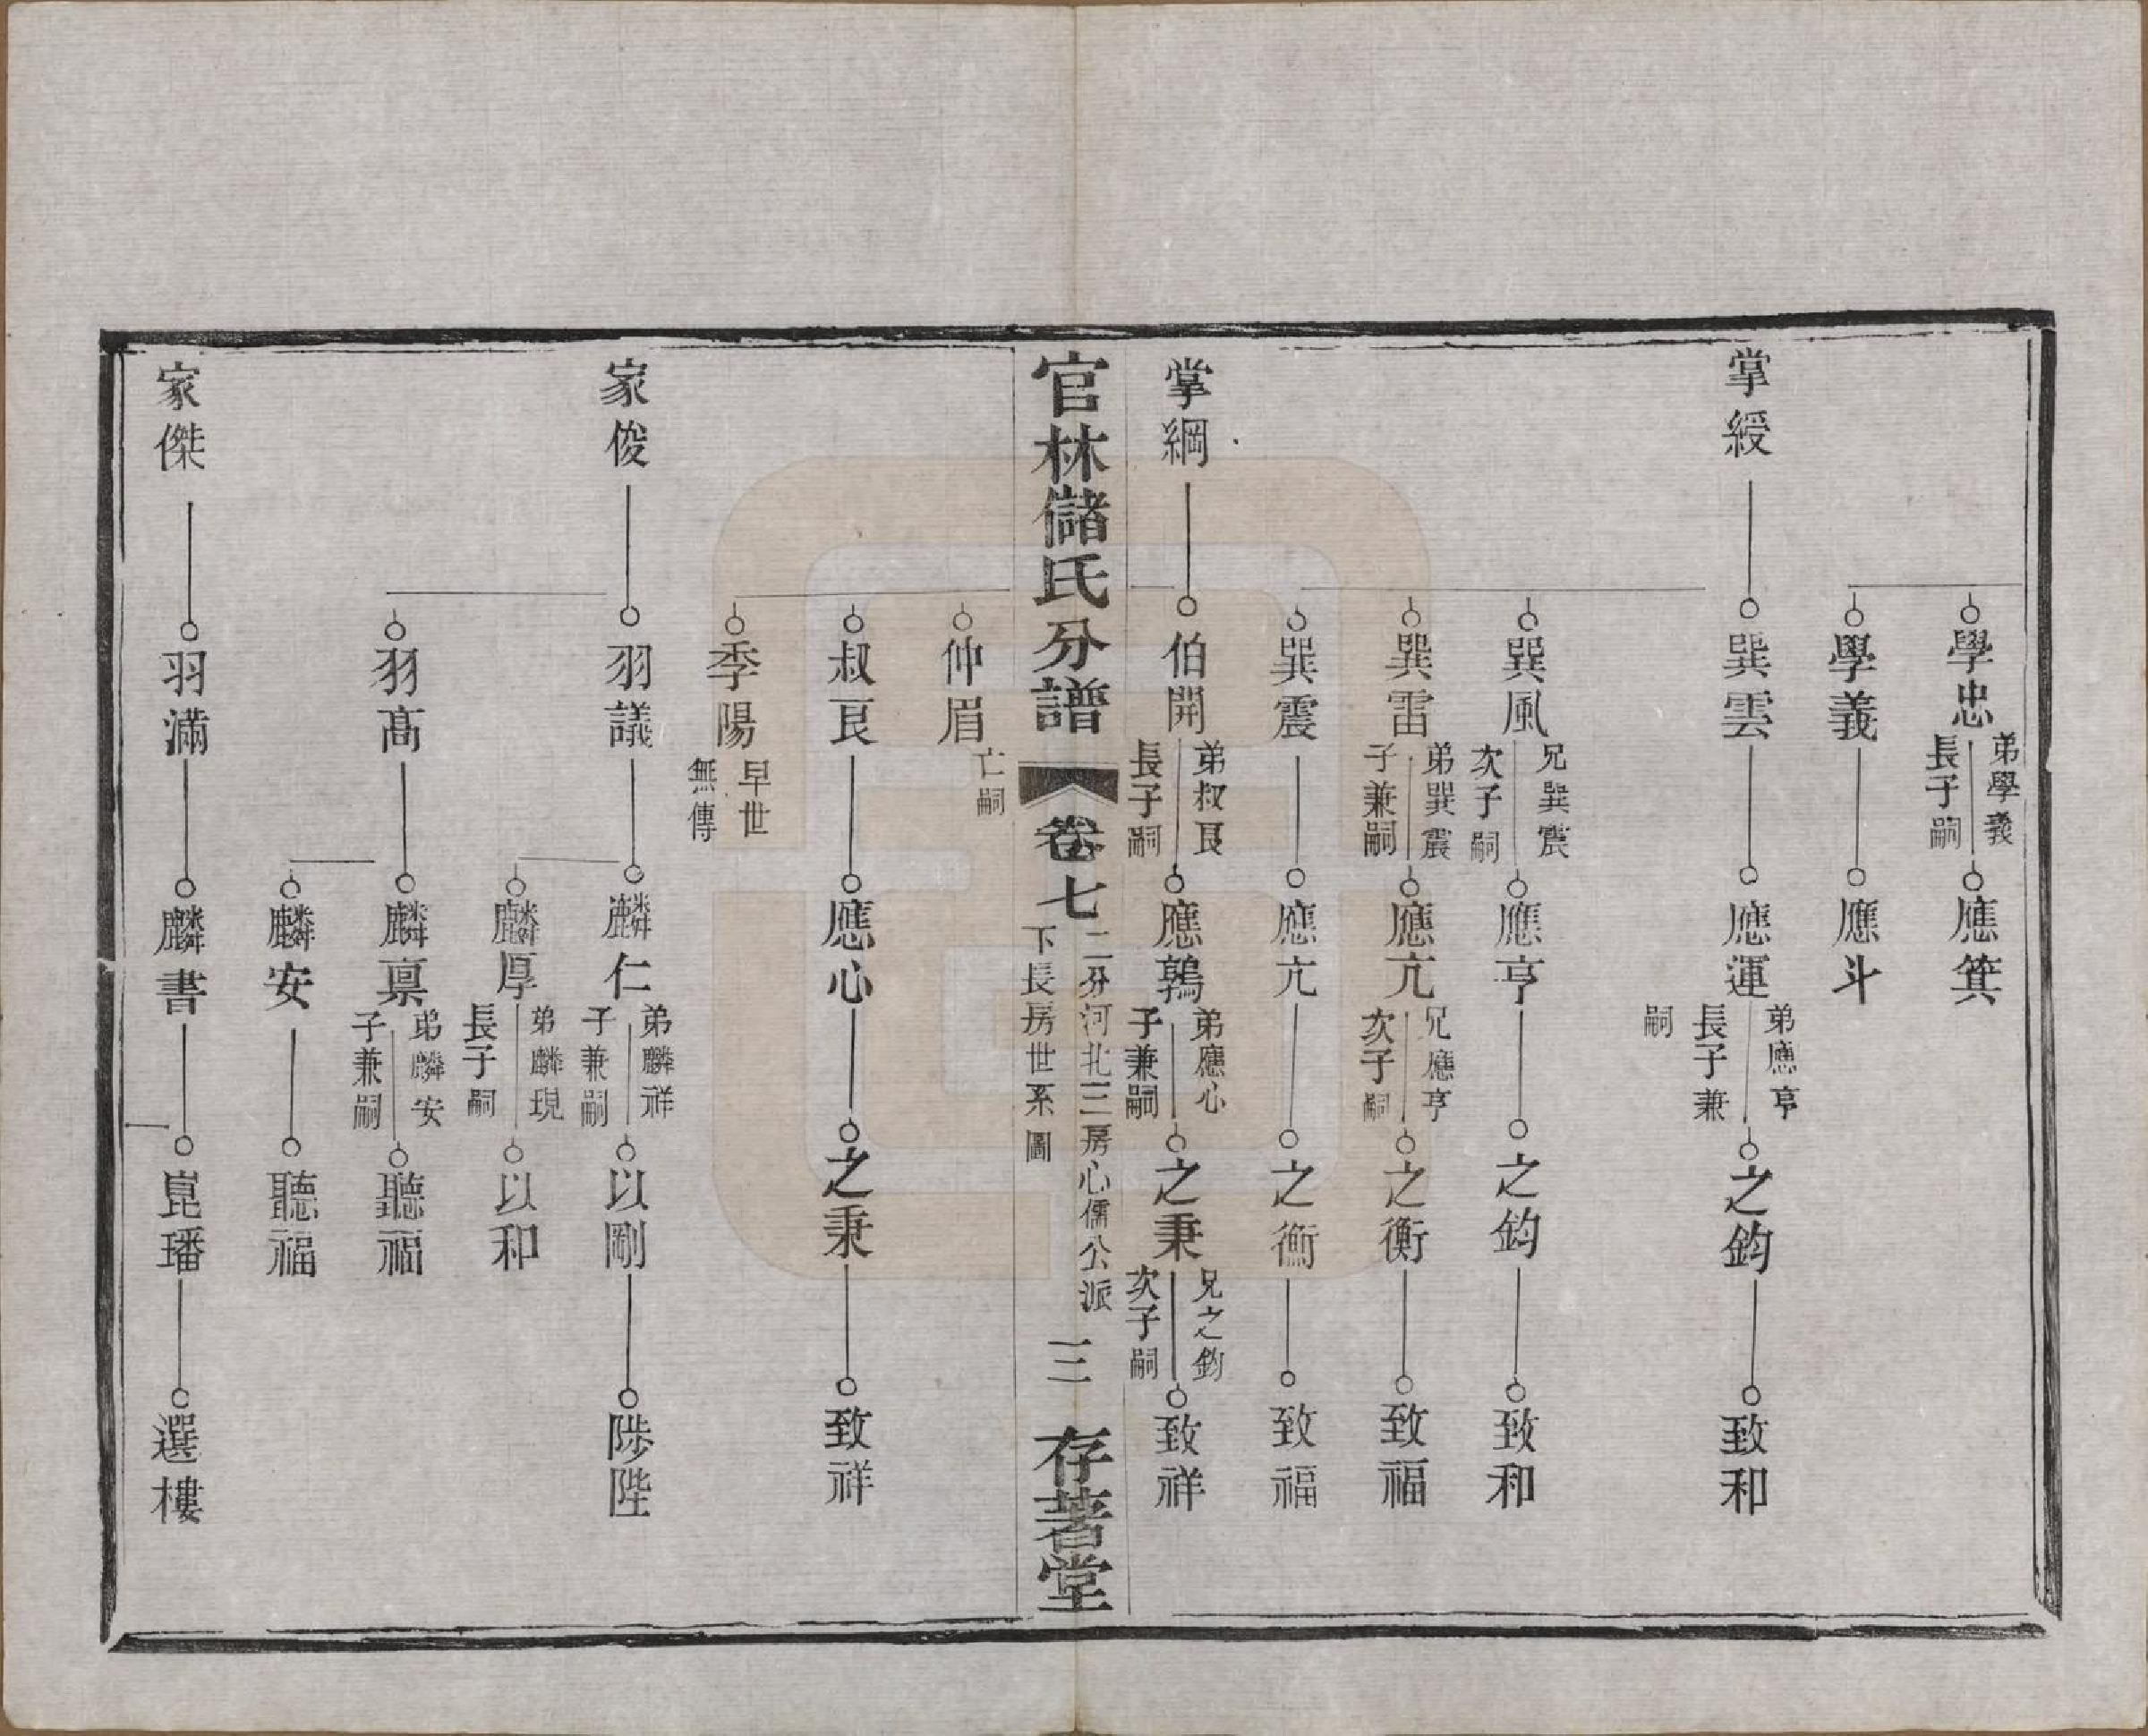 學忠 弟學義長子嗣 應箕
學義 應斗
掌綬 巽雲 應運 弟應亨長子兼嗣 之鈞 致和
巽風 兄巽震次子嗣 應亨 之鈞 致和
巽雷 弟巽震子兼嗣 應亢 兄應亨次子嗣 之衡 致福
巽震 應亢 之衡 致福
掌綱 伯開 弟叔艮長子嗣 應鶉 弟應心子兼嗣 之秉 兄之鈞次子嗣 致祥
官林儲氏分譜 卷七 二分河北三房心儒公派下長房世系圖 三 存著堂
仲眉 亡嗣
叔艮 應心 之秉 致祥
季陽 早世無傳
家俊 羽議 麟仁 弟麟祥子兼嗣 以剛 陟陛
麟厚 弟麟現長子嗣 以和
羽高 麟稟 弟麟安子兼嗣 聽福
麟安 聽福
家傑 羽滿 麟書 崑璠 選樓